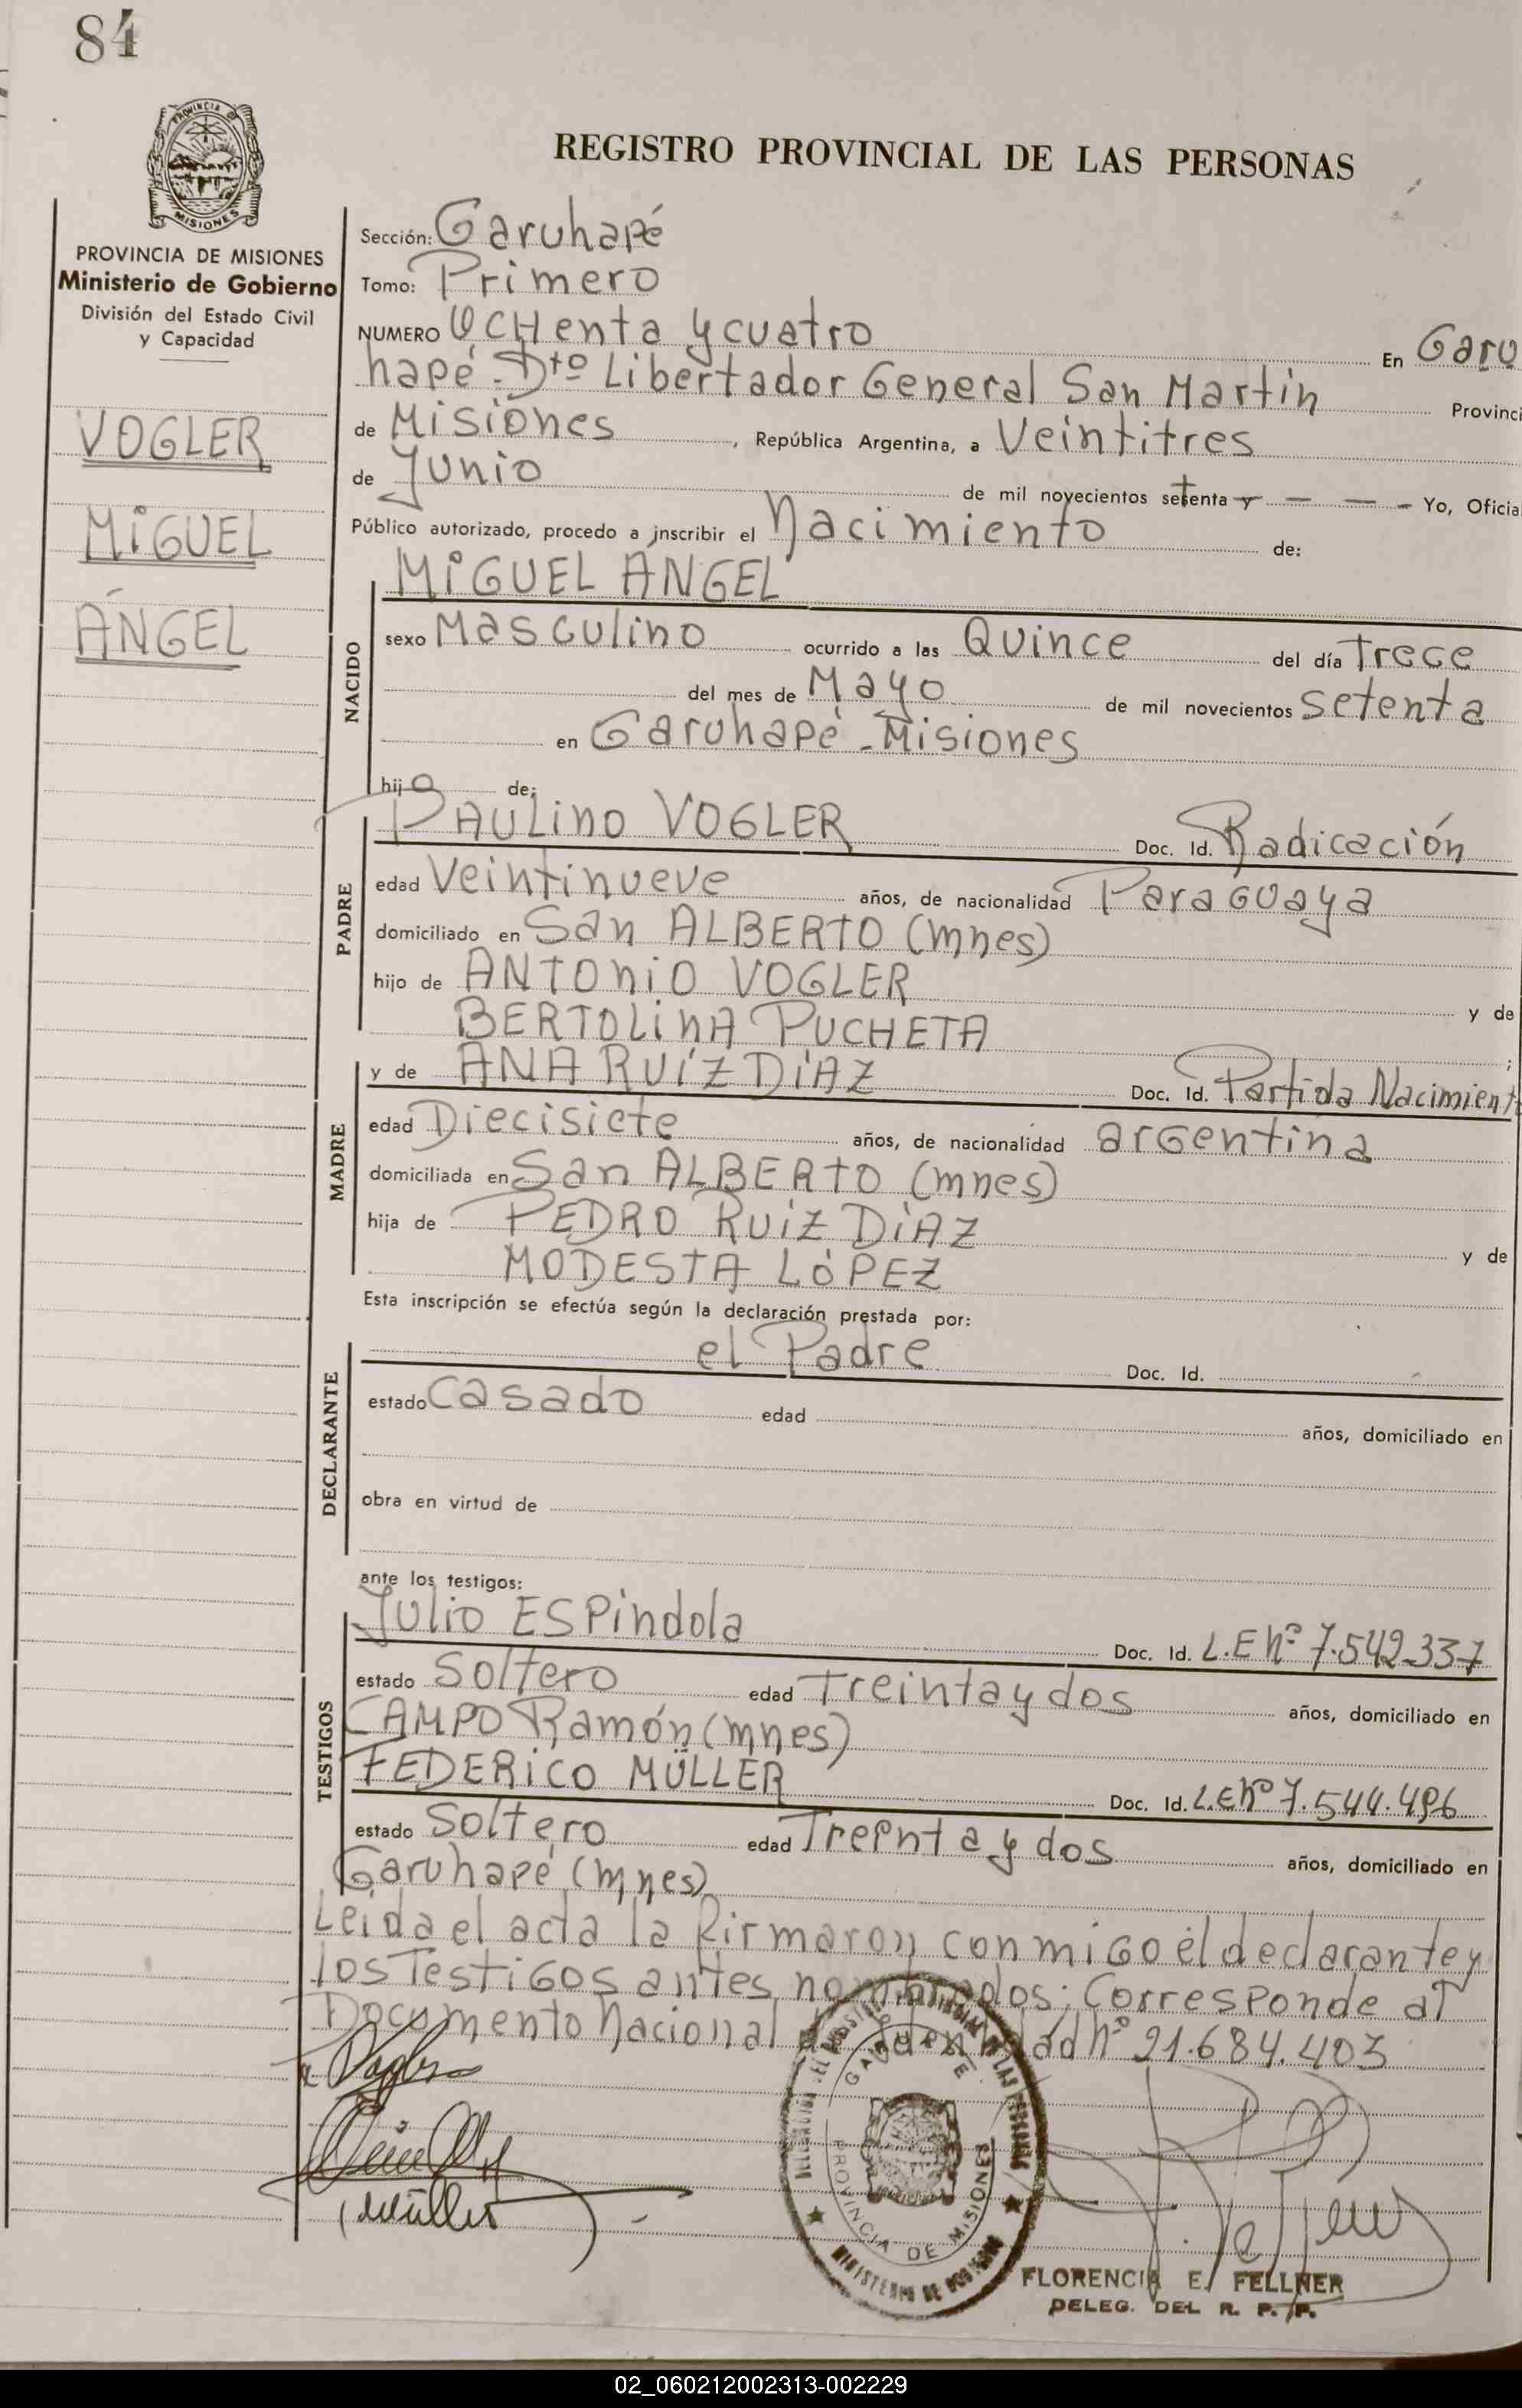 84
PROVINCIA DE
MISIONES
PROVINCIA DE MISIONES
Ministerio de Gobierno
División del Estado Civil
y Capacidad
VOGLER
MiGUEL
ÁNGEL
REGISTRO PROVINCIAL DE LAS PERSONAS
Sección: Garuhapé
Tomo: Primero
NUMERO OCHenta y cuatro En Garu
hapé - Dto Libertador General San Martin Provinci
de Misiones, República Argentina, a Veintitres
de Junio de mil novecientos setenta y — — — Yo, Oficia
Público autorizado, procedo a inscribir el Nacimiento de:
MiGUEL ANGEL
NACIDO
sexo Masculino ocurrido a las Quince del día Trece
del mes de Mayo de mil novecientos Setenta
en Garuhapé - Misiones
hijo de:
PAULino VOGLER Doc. Id. Radicación
PADRE
edad Veintinueve años, de nacionalidad Paraguaya
domiciliado en San ALBERTO (mnes)
hijo de ANTONiO VOGLER y de
BERTOLiNA PUCHETA ;
y de ANA RUíZ DiAZ Doc. Id. Partida Nacimient
MADRE
edad Diecisiete años, de nacionalidad argentina
domiciliada en San ALBERTO (mnes)
hija de PEDRO RUiZ DiAZ y de
MODESTA LÓPEZ
Esta inscripción se efectúa según la declaración prestada por:
el Padre Doc. Id.
DECLARANTE
estado Casado edad años, domiciliado en
obra en virtud de
ante los testigos:
Julio ESPindola Doc. Id. L.E nº 7.542.337
TESTIGOS
estado Soltero edad Treinta y dos años, domiciliado en
CAMPO Ramón (mnes)
FEDERiCO MÜLLER Doc. Id. L.E nº 7.544.496
estado Soltero edad Treinta y dos años, domiciliado en
Garuhapé (mnes)
Leida el acta la firmaron conmigo el declarante y
los Testigos antes nombrados; Corresponde al
Documento Nacional de Identidad nº 21.684.403
Vogler
Müller
GARUHAPE
PROVINCIA DE MISIONES
MINISTERIO DE GOBIERNO
FLORENCIA E. FELLNER
DELEG. DEL R. P. P.
02_060212002313-002229